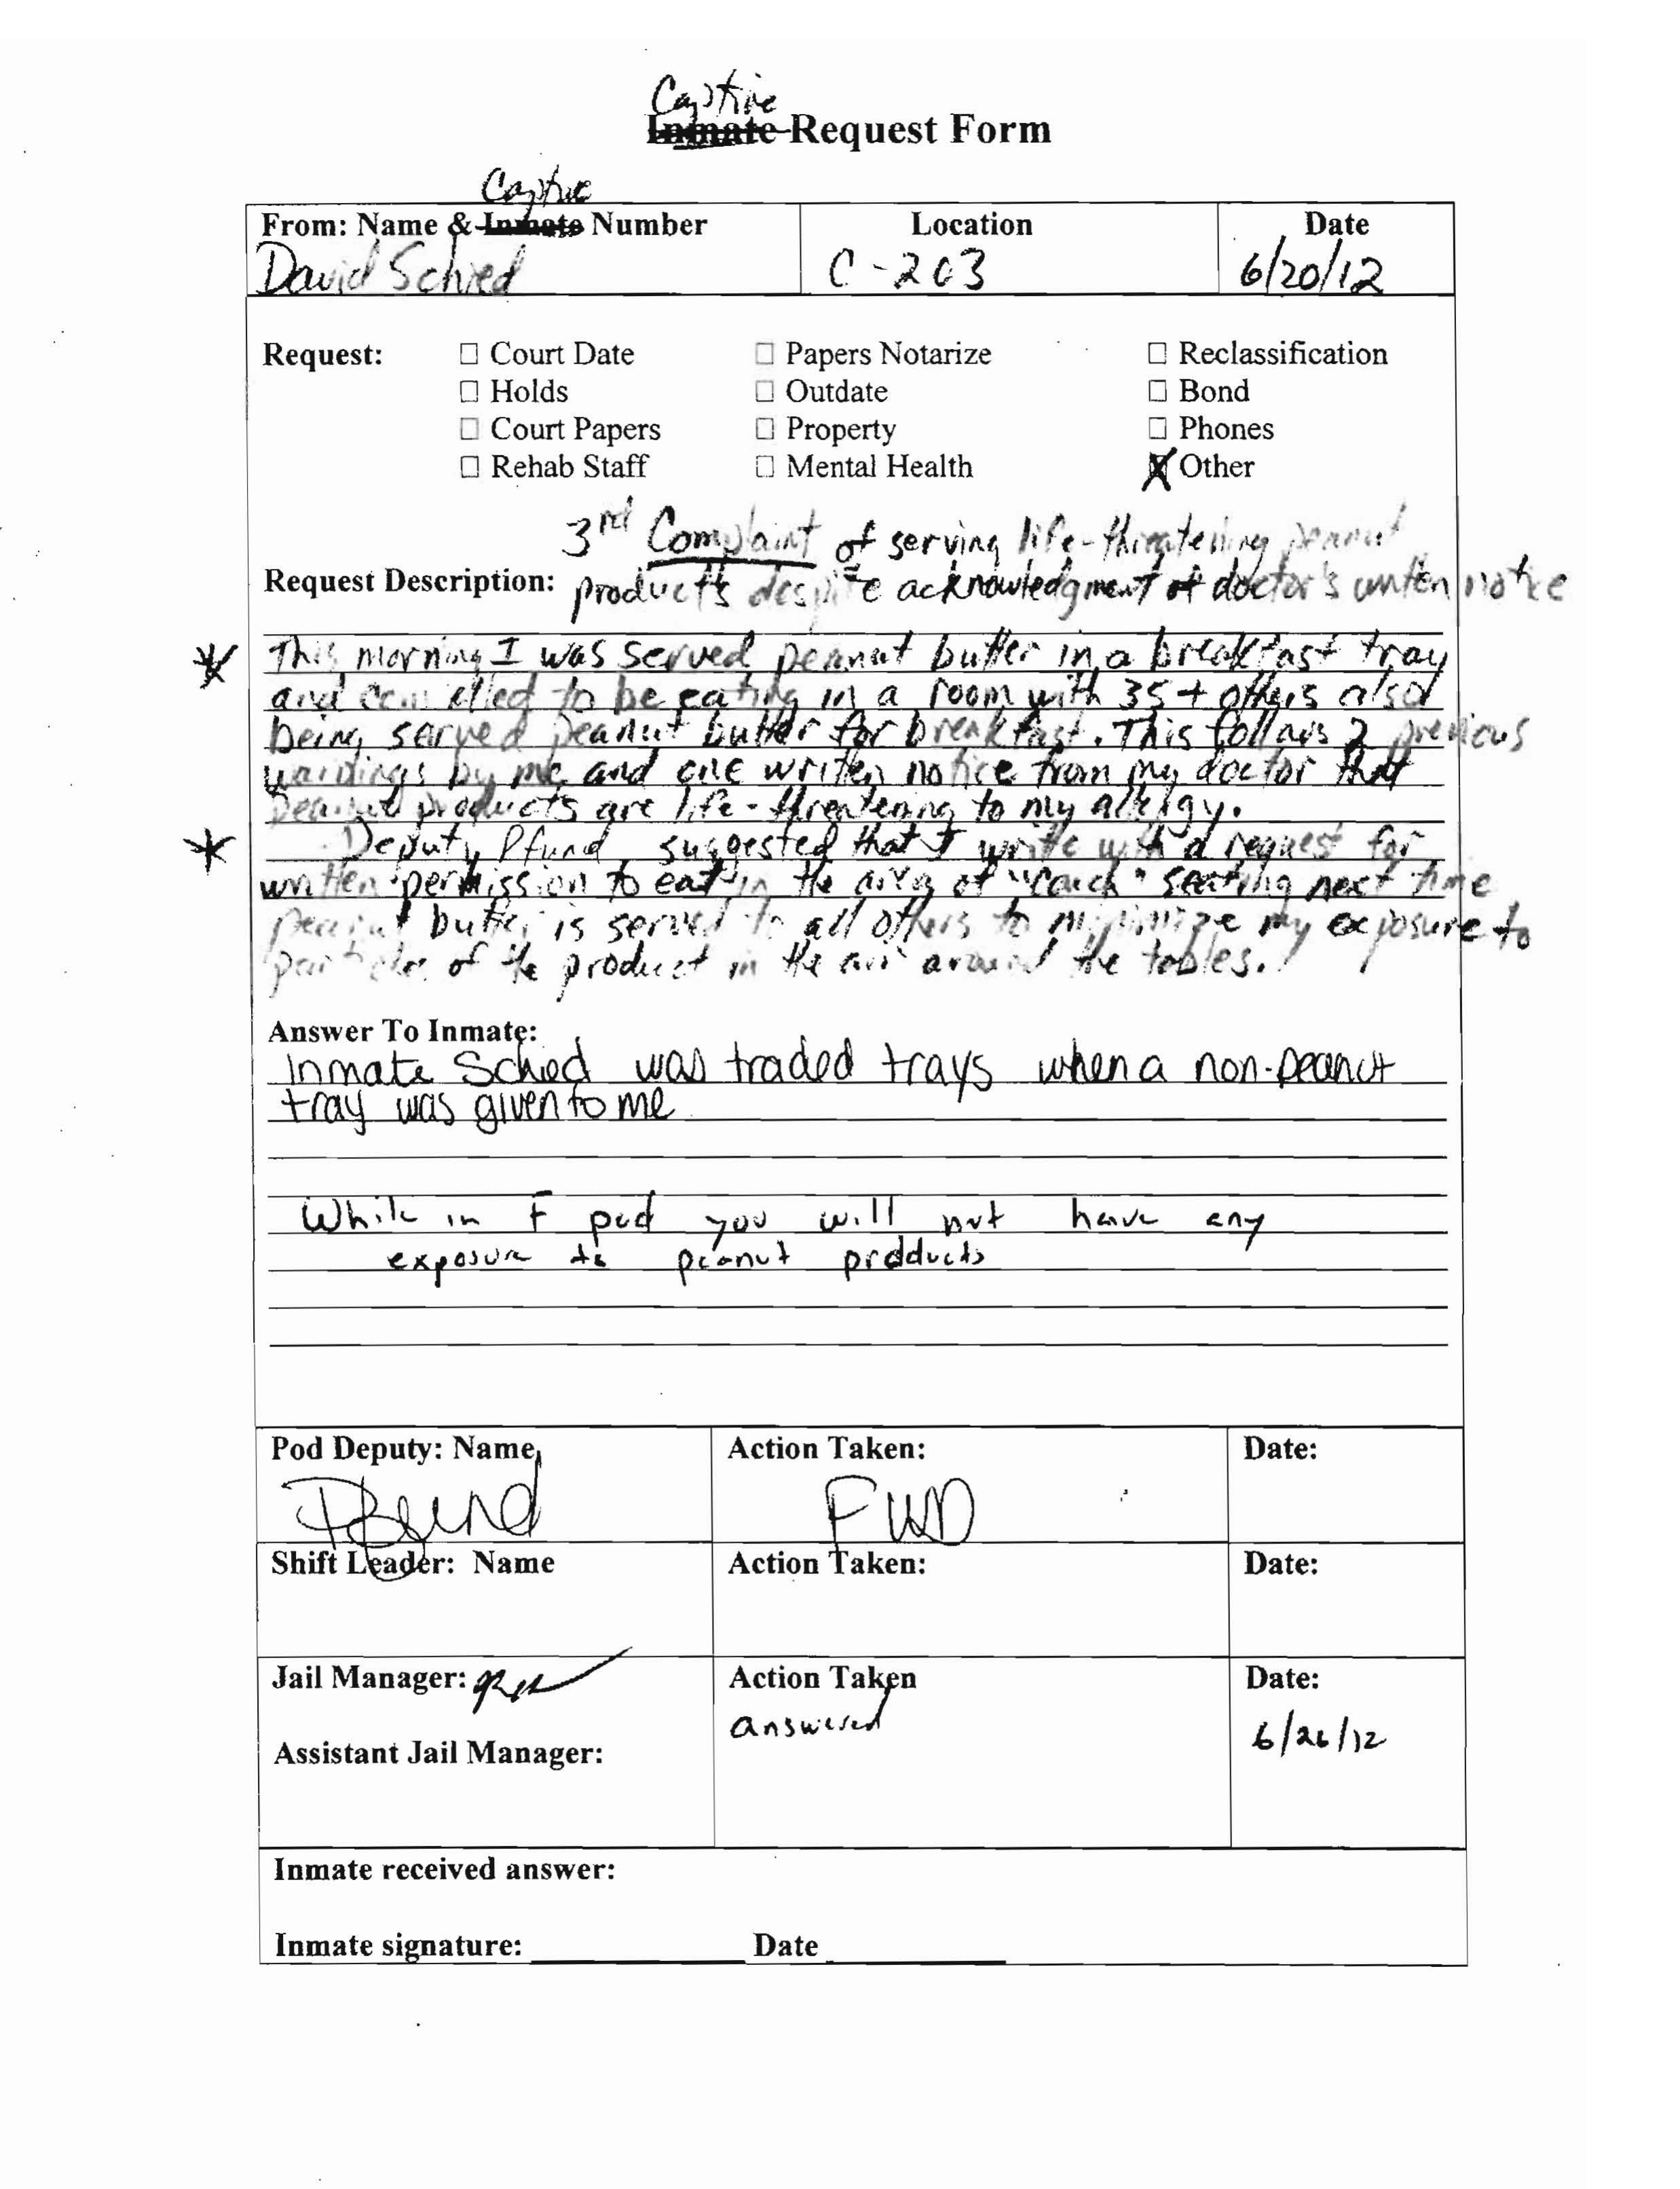 Captive
Inmate Request Form
Captive
From: Name & Inmate Number Location Date
David Schied C-203 6/20/12
Request: ☐ Court Date ☐ Papers Notarize ☐ Reclassification
☐ Holds ☐ Outdate ☐ Bond
☐ Court Papers ☐ Property ☐ Phones
☐ Rehab Staff ☐ Mental Health ☒ Other
3rd Complaint of serving life-threatening peanut
Request Description: products despite acknowledgment of doctor's written notice
* This morning I was served peanut butter in a breakfast tray
and compelled to be eating in a room with 35+ others also
being served peanut butter for breakfast. This follows 2 previous
warnings by me and one written notice from my doctor that
peanut products are life-threatening to my allergy.
* Deputy Pfund suggested that I write with a request for
written permission to eat in the area of "couch" seating next time
peanut butter is served to all others to minimize my exposure to
particles of the product in the air around the tables.
Answer To Inmate:
Inmate Schied was traded trays when a non-peanut
tray was given to me
While in F pod you will not have any
exposure to peanut products
Pod Deputy: Name Action Taken: Date:
Pfund FWD
Shift Leader: Name Action Taken: Date:
Jail Manager: Action Taken Date:
answered 6/26/12
Assistant Jail Manager:
Inmate received answer:
Inmate signature: Date